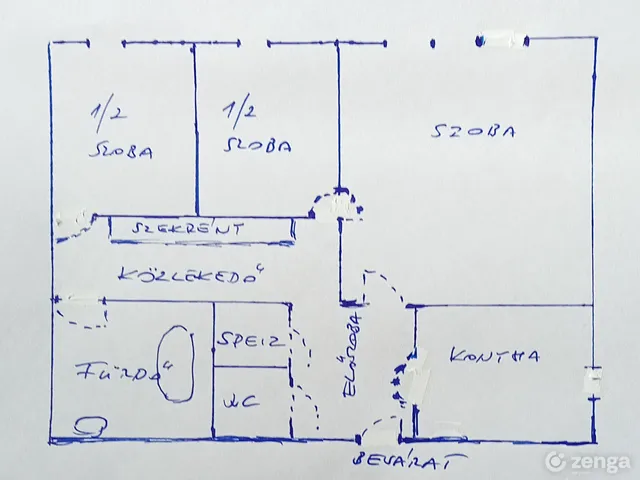 1/2
SZOBA
1/2
SZOBA
SZOBA
SZEKRÉNY
KÖZLEKEDŐ
SPEIZ
FÜRDŐ
WC
ELŐSZOBA
KONYHA
BEJÁRAT
zenga